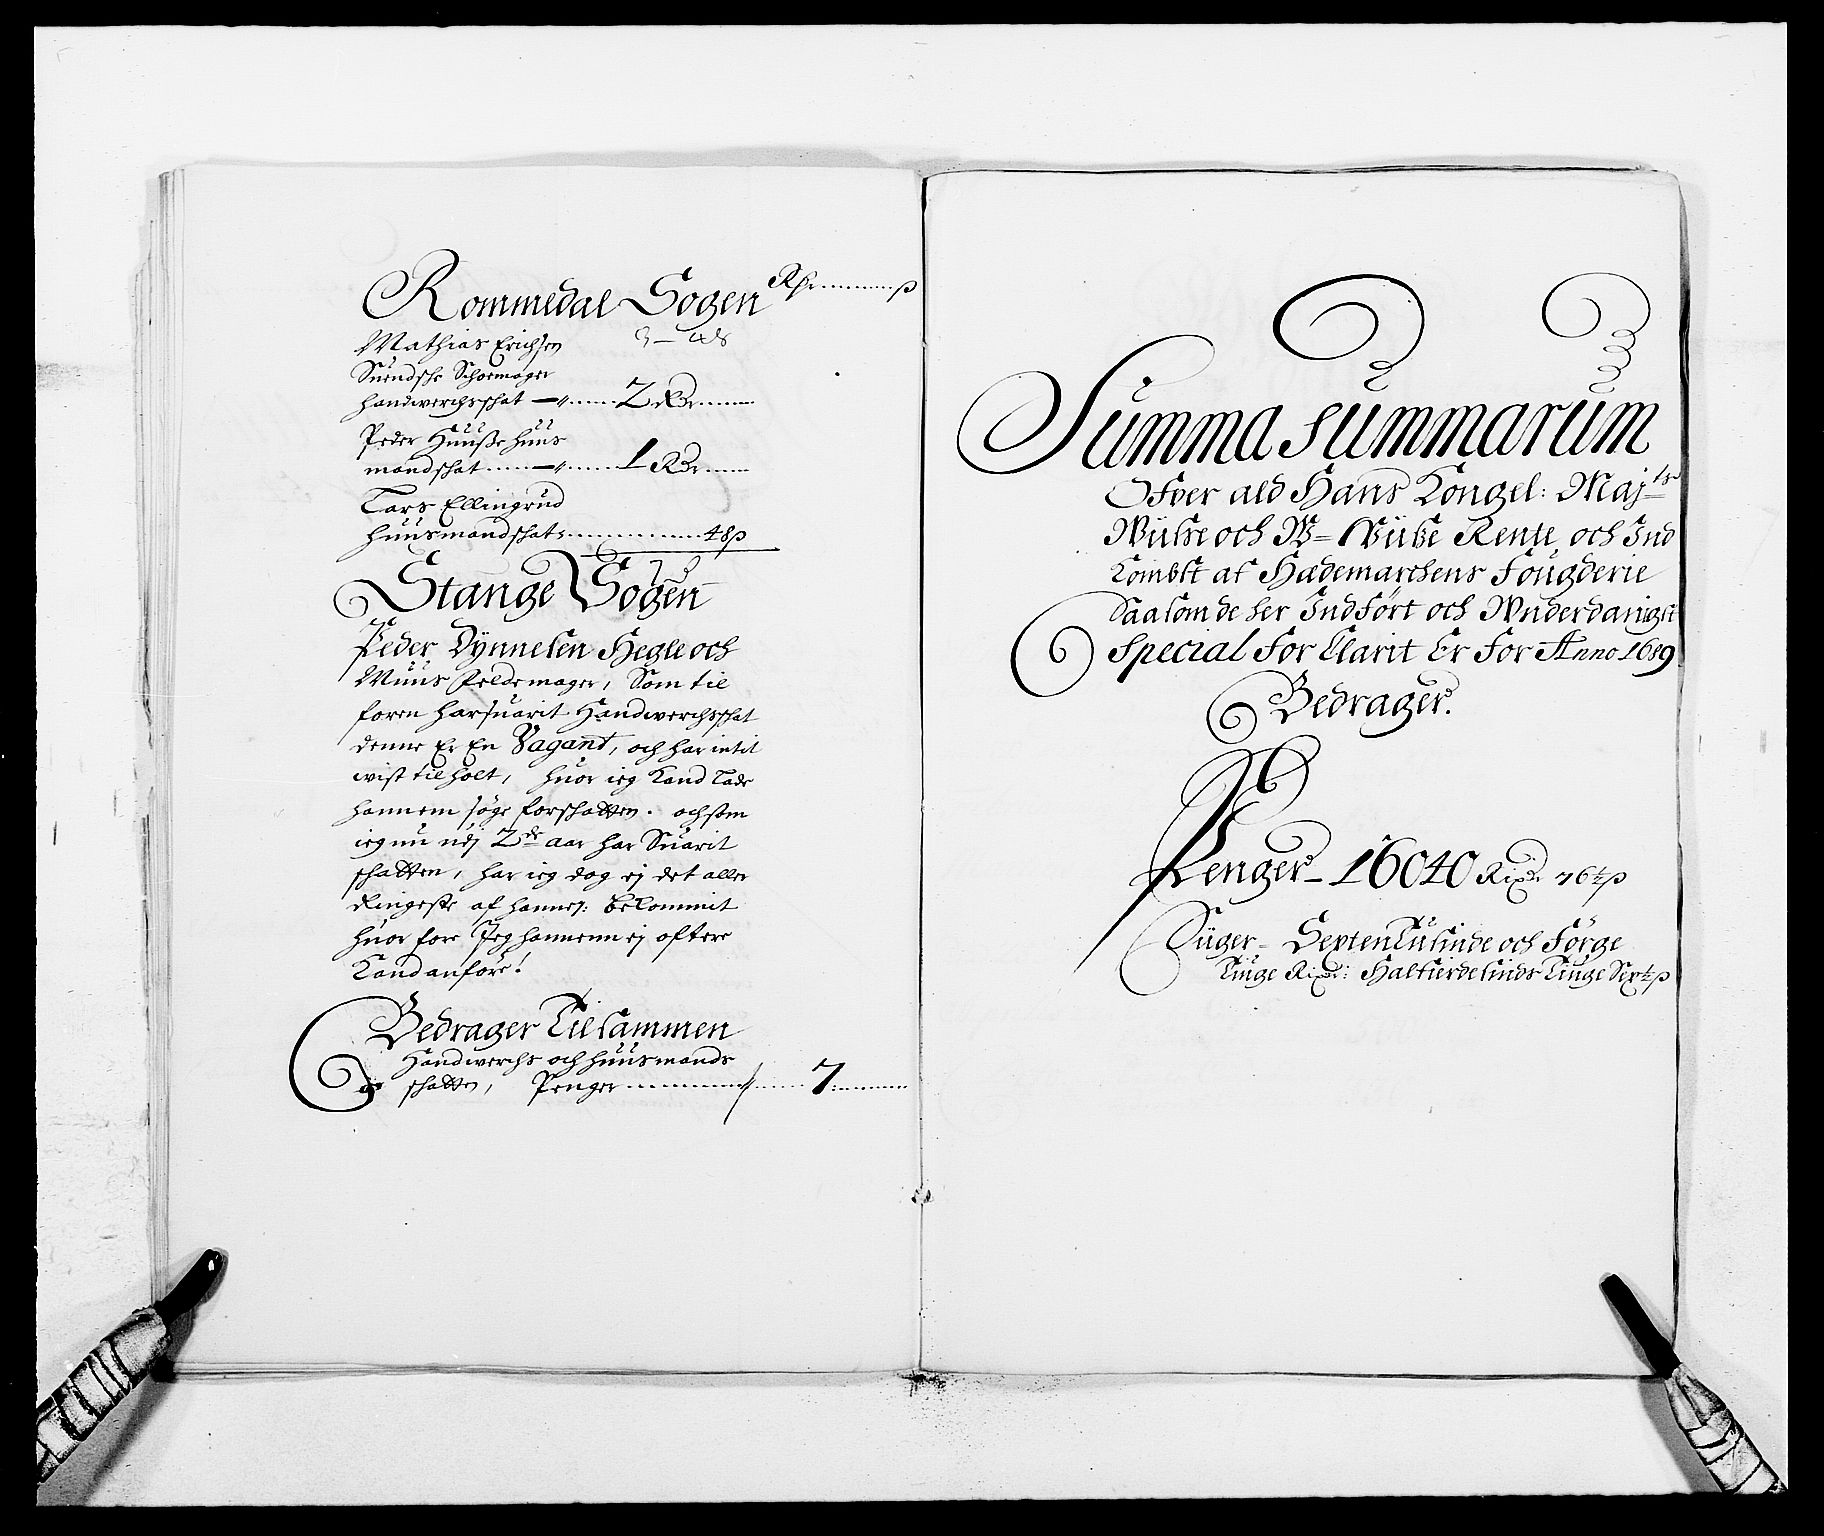 Rommedal Sogen Rdr ß
Mathias Erichsen
Suendsche Schoemager
handwerchsschat 2 Rdr
Peder Huuße huus
mandschat 1 Rdr
Lars Ellingrud
huusmandschat 48 ß
Stange Sogen
Peder Dynnesen Hegle och
Muus Peldemager, Som til
foren har suarit Handwerchsschat
denne Er En Vagant, och har intit
wist tilholt, huor ieg Kand Lade
hannem søge forschatten. och som
ieg nu udj 2de aar har Suarit
schatten, har ieg dog ej det aller
Ringeste af hannem: bekommit
huor fore Jeg hannem ej oftere
Kand anføre!
Bedrager Tilsammen
Handwerchs och huusmands
schatten, Penger 7
Summa Summarum
Ofver ald Hans Kongel: Majts
Wisse och W= Wisse Rente och Ind
Kombst af Hædemarchens Fougderie
Saasom de her Indført och Wnderdanigst
Special For Klarit Er For Anno 1689
Bedrager.
Penger 16040 Rixdr 76½ ß
Siiger Sexten Tusinde och Førge
Tiuge Rixdr: Halfierdesinds Tiuge Sex½ ß